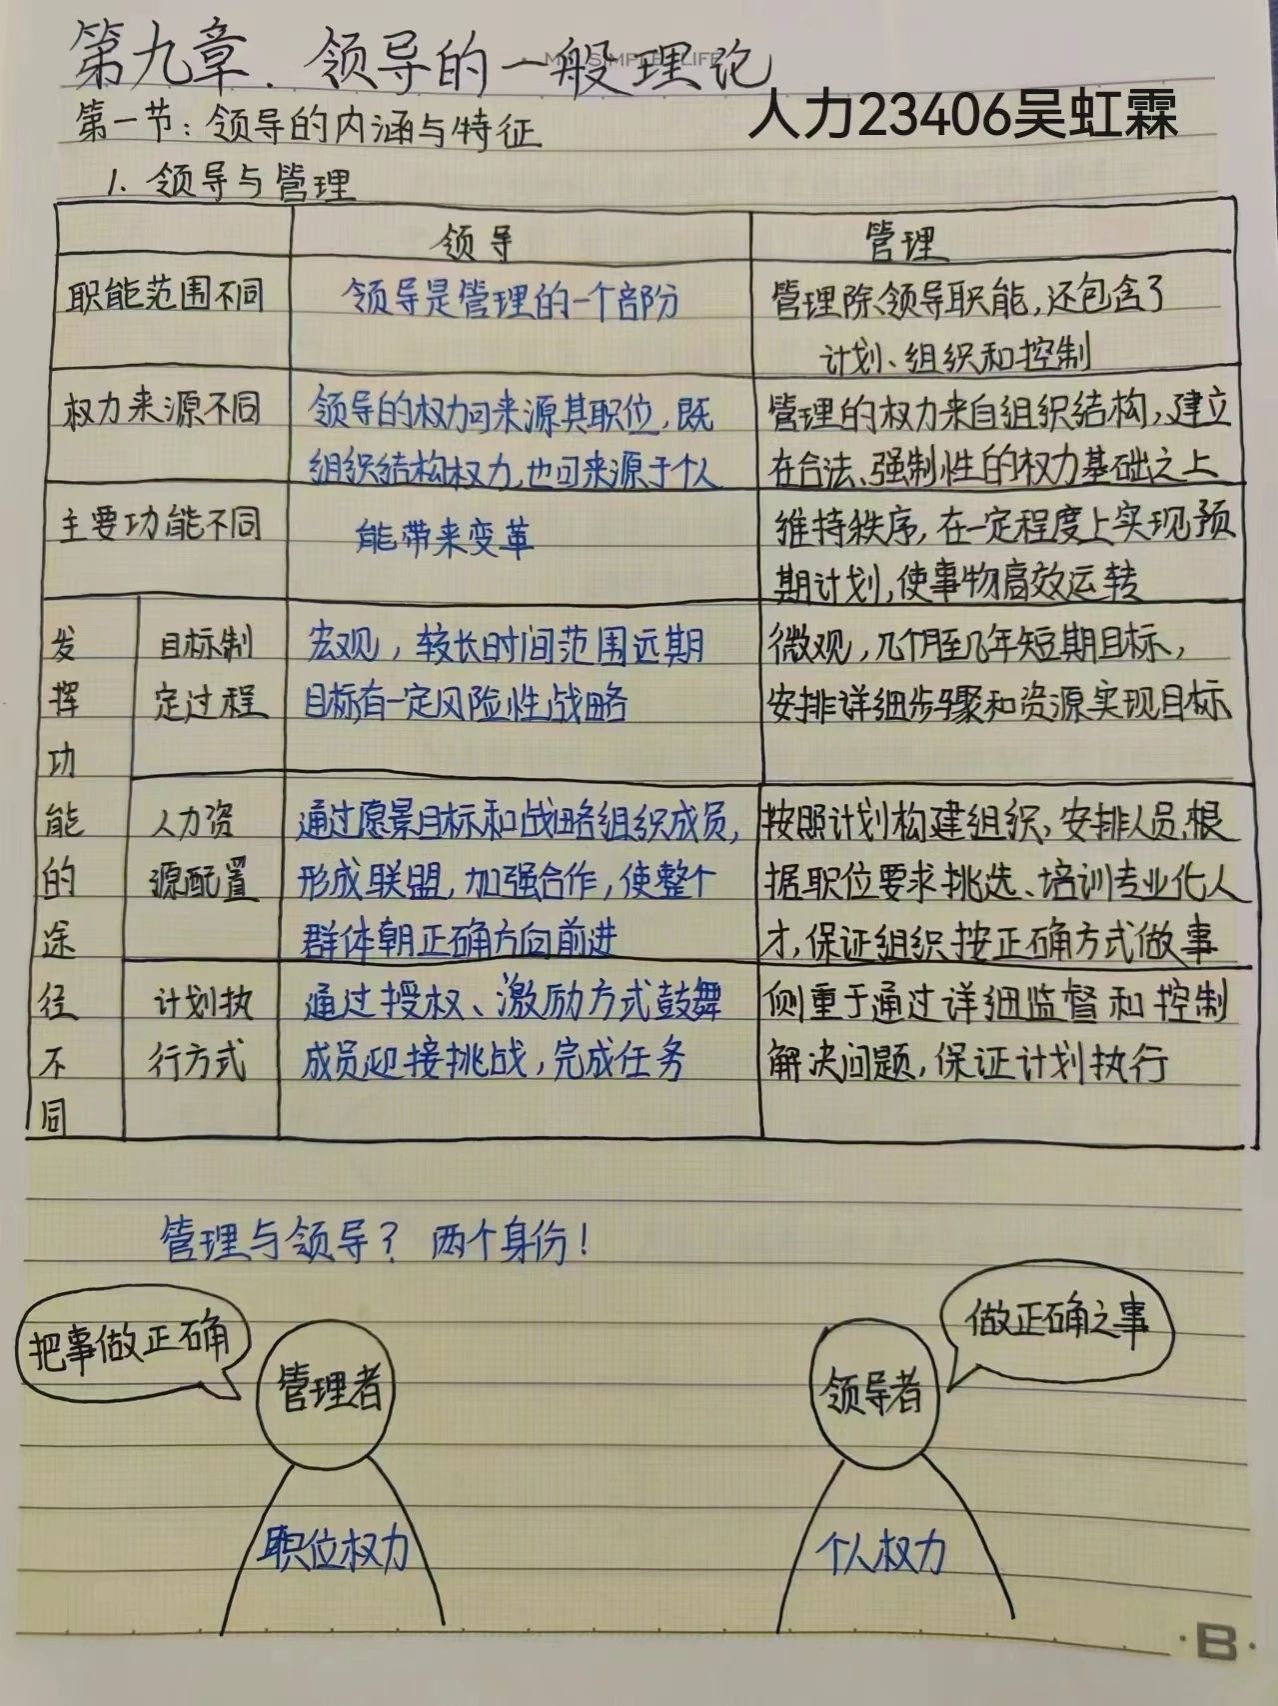 第九章．领导的一般理论
人力23406吴虹霖
第一节：领导的内涵与特征
1. 领导与管理
领导 管理
职能范围不同 领导是管理的一个部分 管理除领导职能，还包含了
计划、组织和控制
权力来源不同 领导的权力可来源其职位，既 管理的权力来自组织结构，建立
组织结构权力，也可来源于个人 在合法、强制性的权力基础之上
主要功能不同 能带来变革 维持秩序，在一定程度上实现预
期计划，使事物高效运转
发挥功能的途径不同
目标制 宏观，较长时间范围远期 微观，几个月至几年短期目标，
定过程 目标，有一定风险性战略 安排详细步骤和资源实现目标
人力资 通过愿景目标和战略组织成员， 按照计划构建组织、安排人员，根
源配置 形成联盟，加强合作，使整个 据职位要求挑选、培训专业化人
群体朝正确方向前进 才，保证组织按正确方式做事
计划执 通过授权、激励方式鼓舞 侧重于通过详细监督和控制
行方式 成员迎接挑战，完成任务 解决问题，保证计划执行
管理与领导？两个身份！
把事做正确
管理者
职位权力
做正确之事
领导者
个人权力
·B·